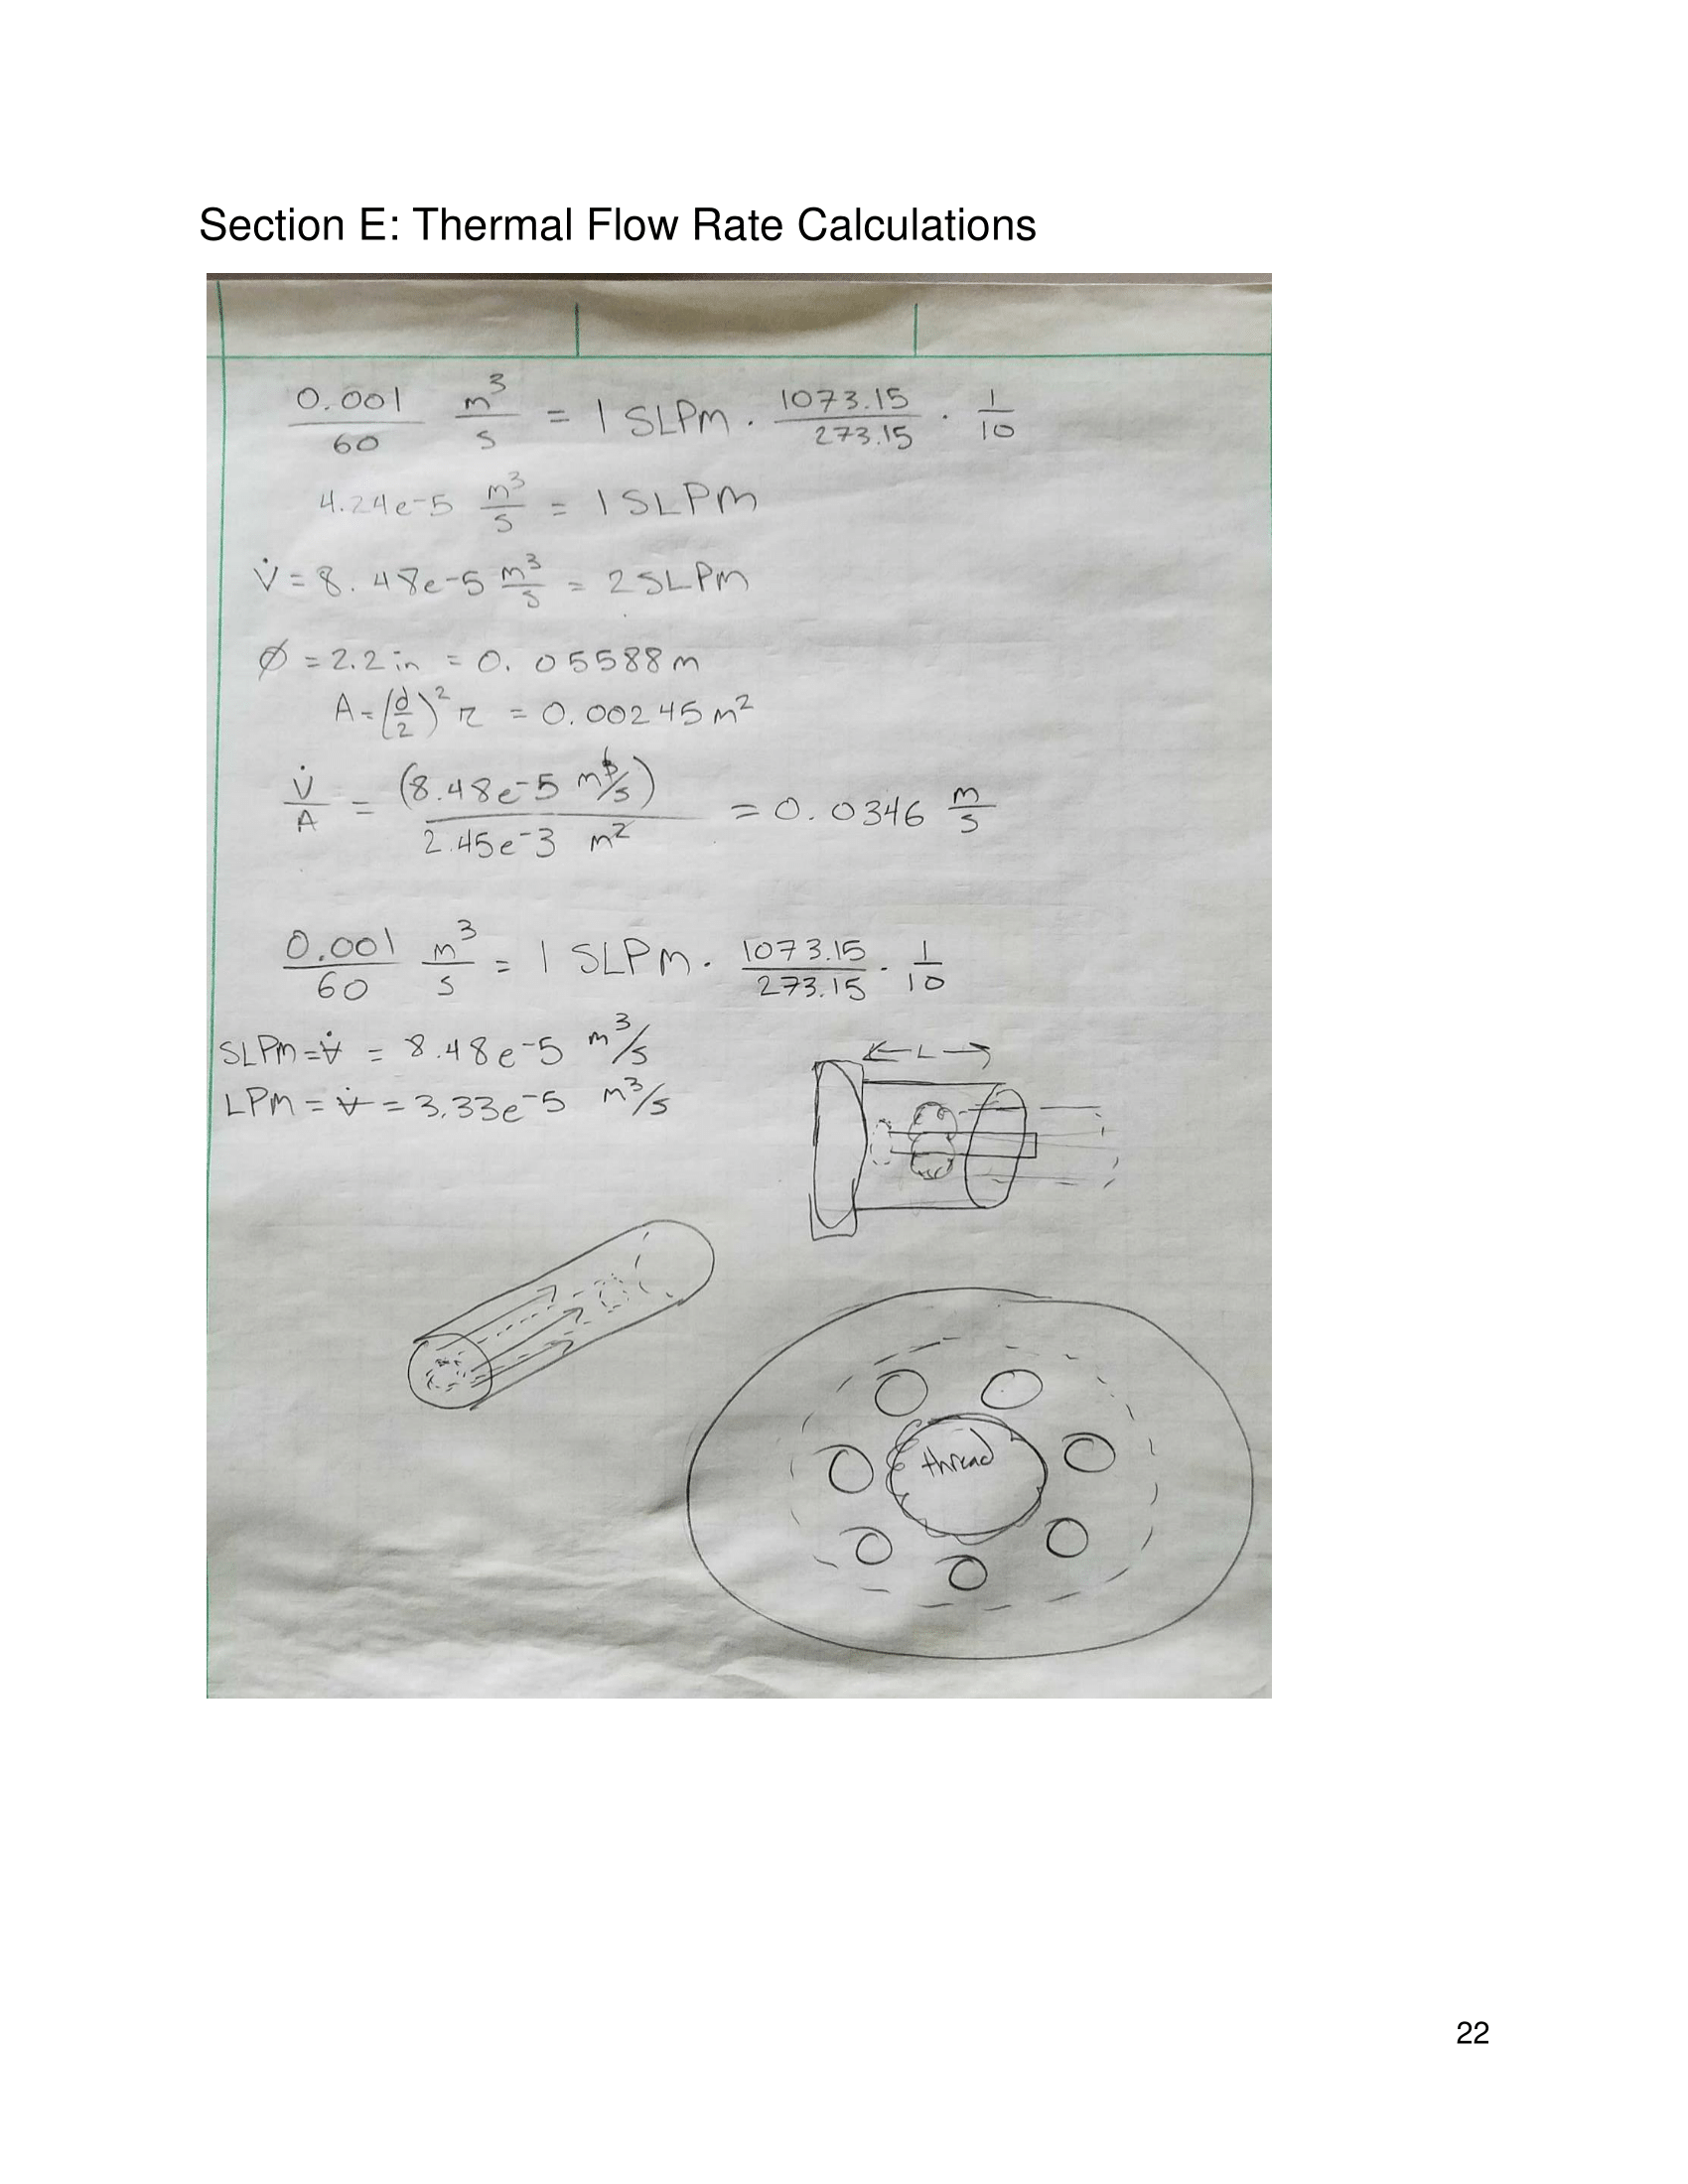 Section E: Thermal Flow Rate Calculations
0.001/60 m³/s = 1 SLPm · 1073.15/273.15 · 1/10
4.24e-5 m³/s = 1 SLPm
V̇ = 8.48e-5 m³/s = 2 SLPm
Ø = 2.2 in = 0.05588 m
A = (d/2)² π = 0.00245 m²
V̇/A = (8.48e-5 m³/s)/(2.45e-3 m²) = 0.0346 m/s
0.001/60 m³/s = 1 SLPm · 1073.15/273.15 · 1/10
SLPm = V̇ = 8.48e-5 m³/s
LPm = V̇ = 3.33e-5 m³/s
L
thread
22